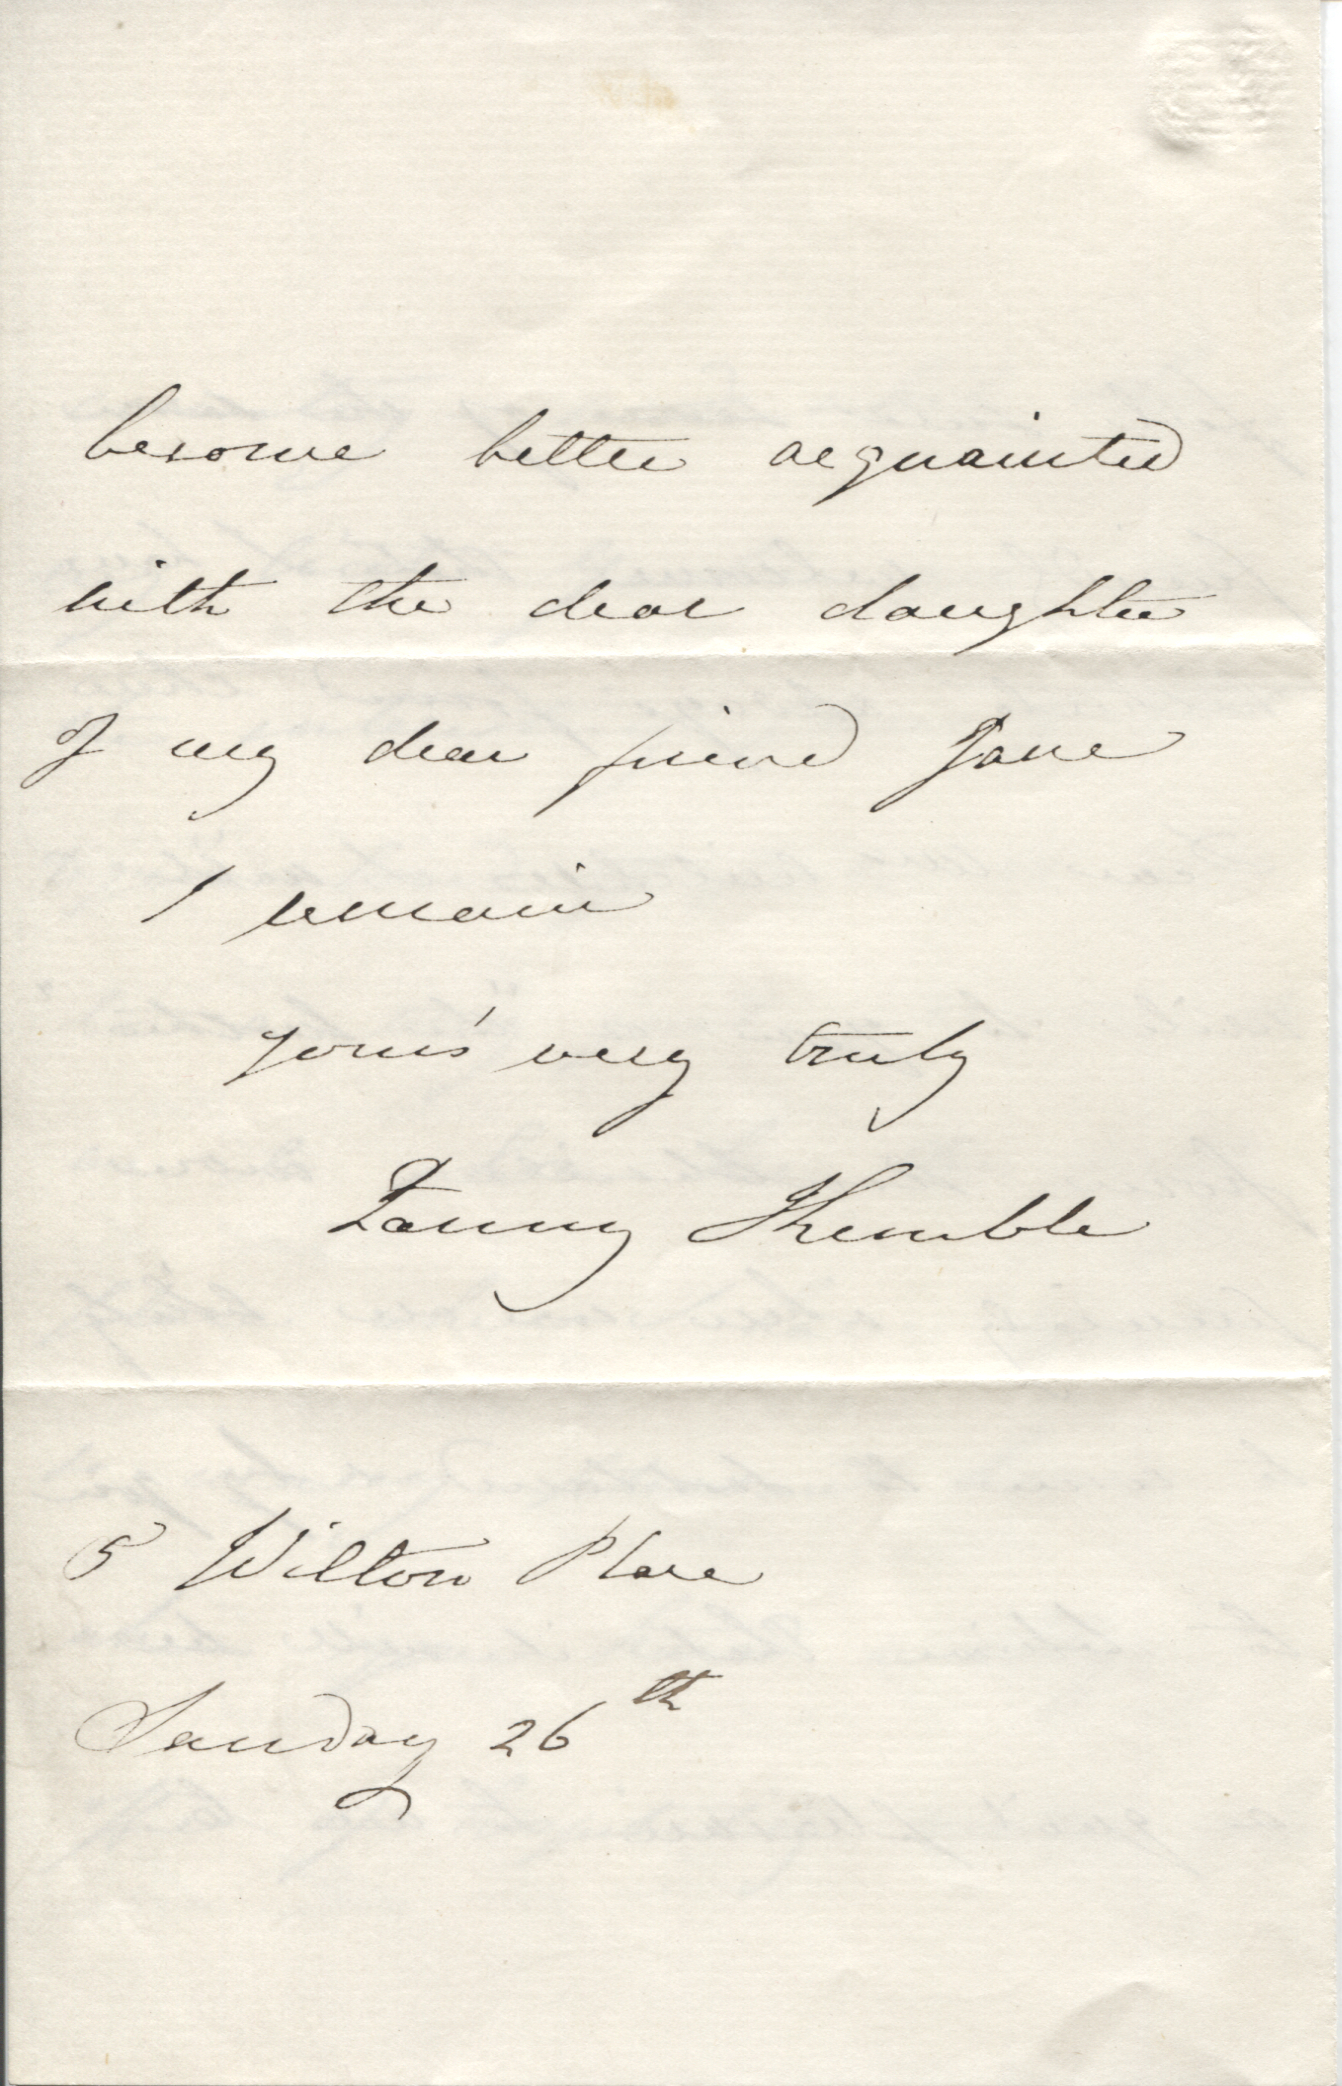 become better acquainted
with the dear daughter
of my dear friend Jane
I remain
your's very truly
Fanny Kemble
5 Wilton Place
Sunday 26th